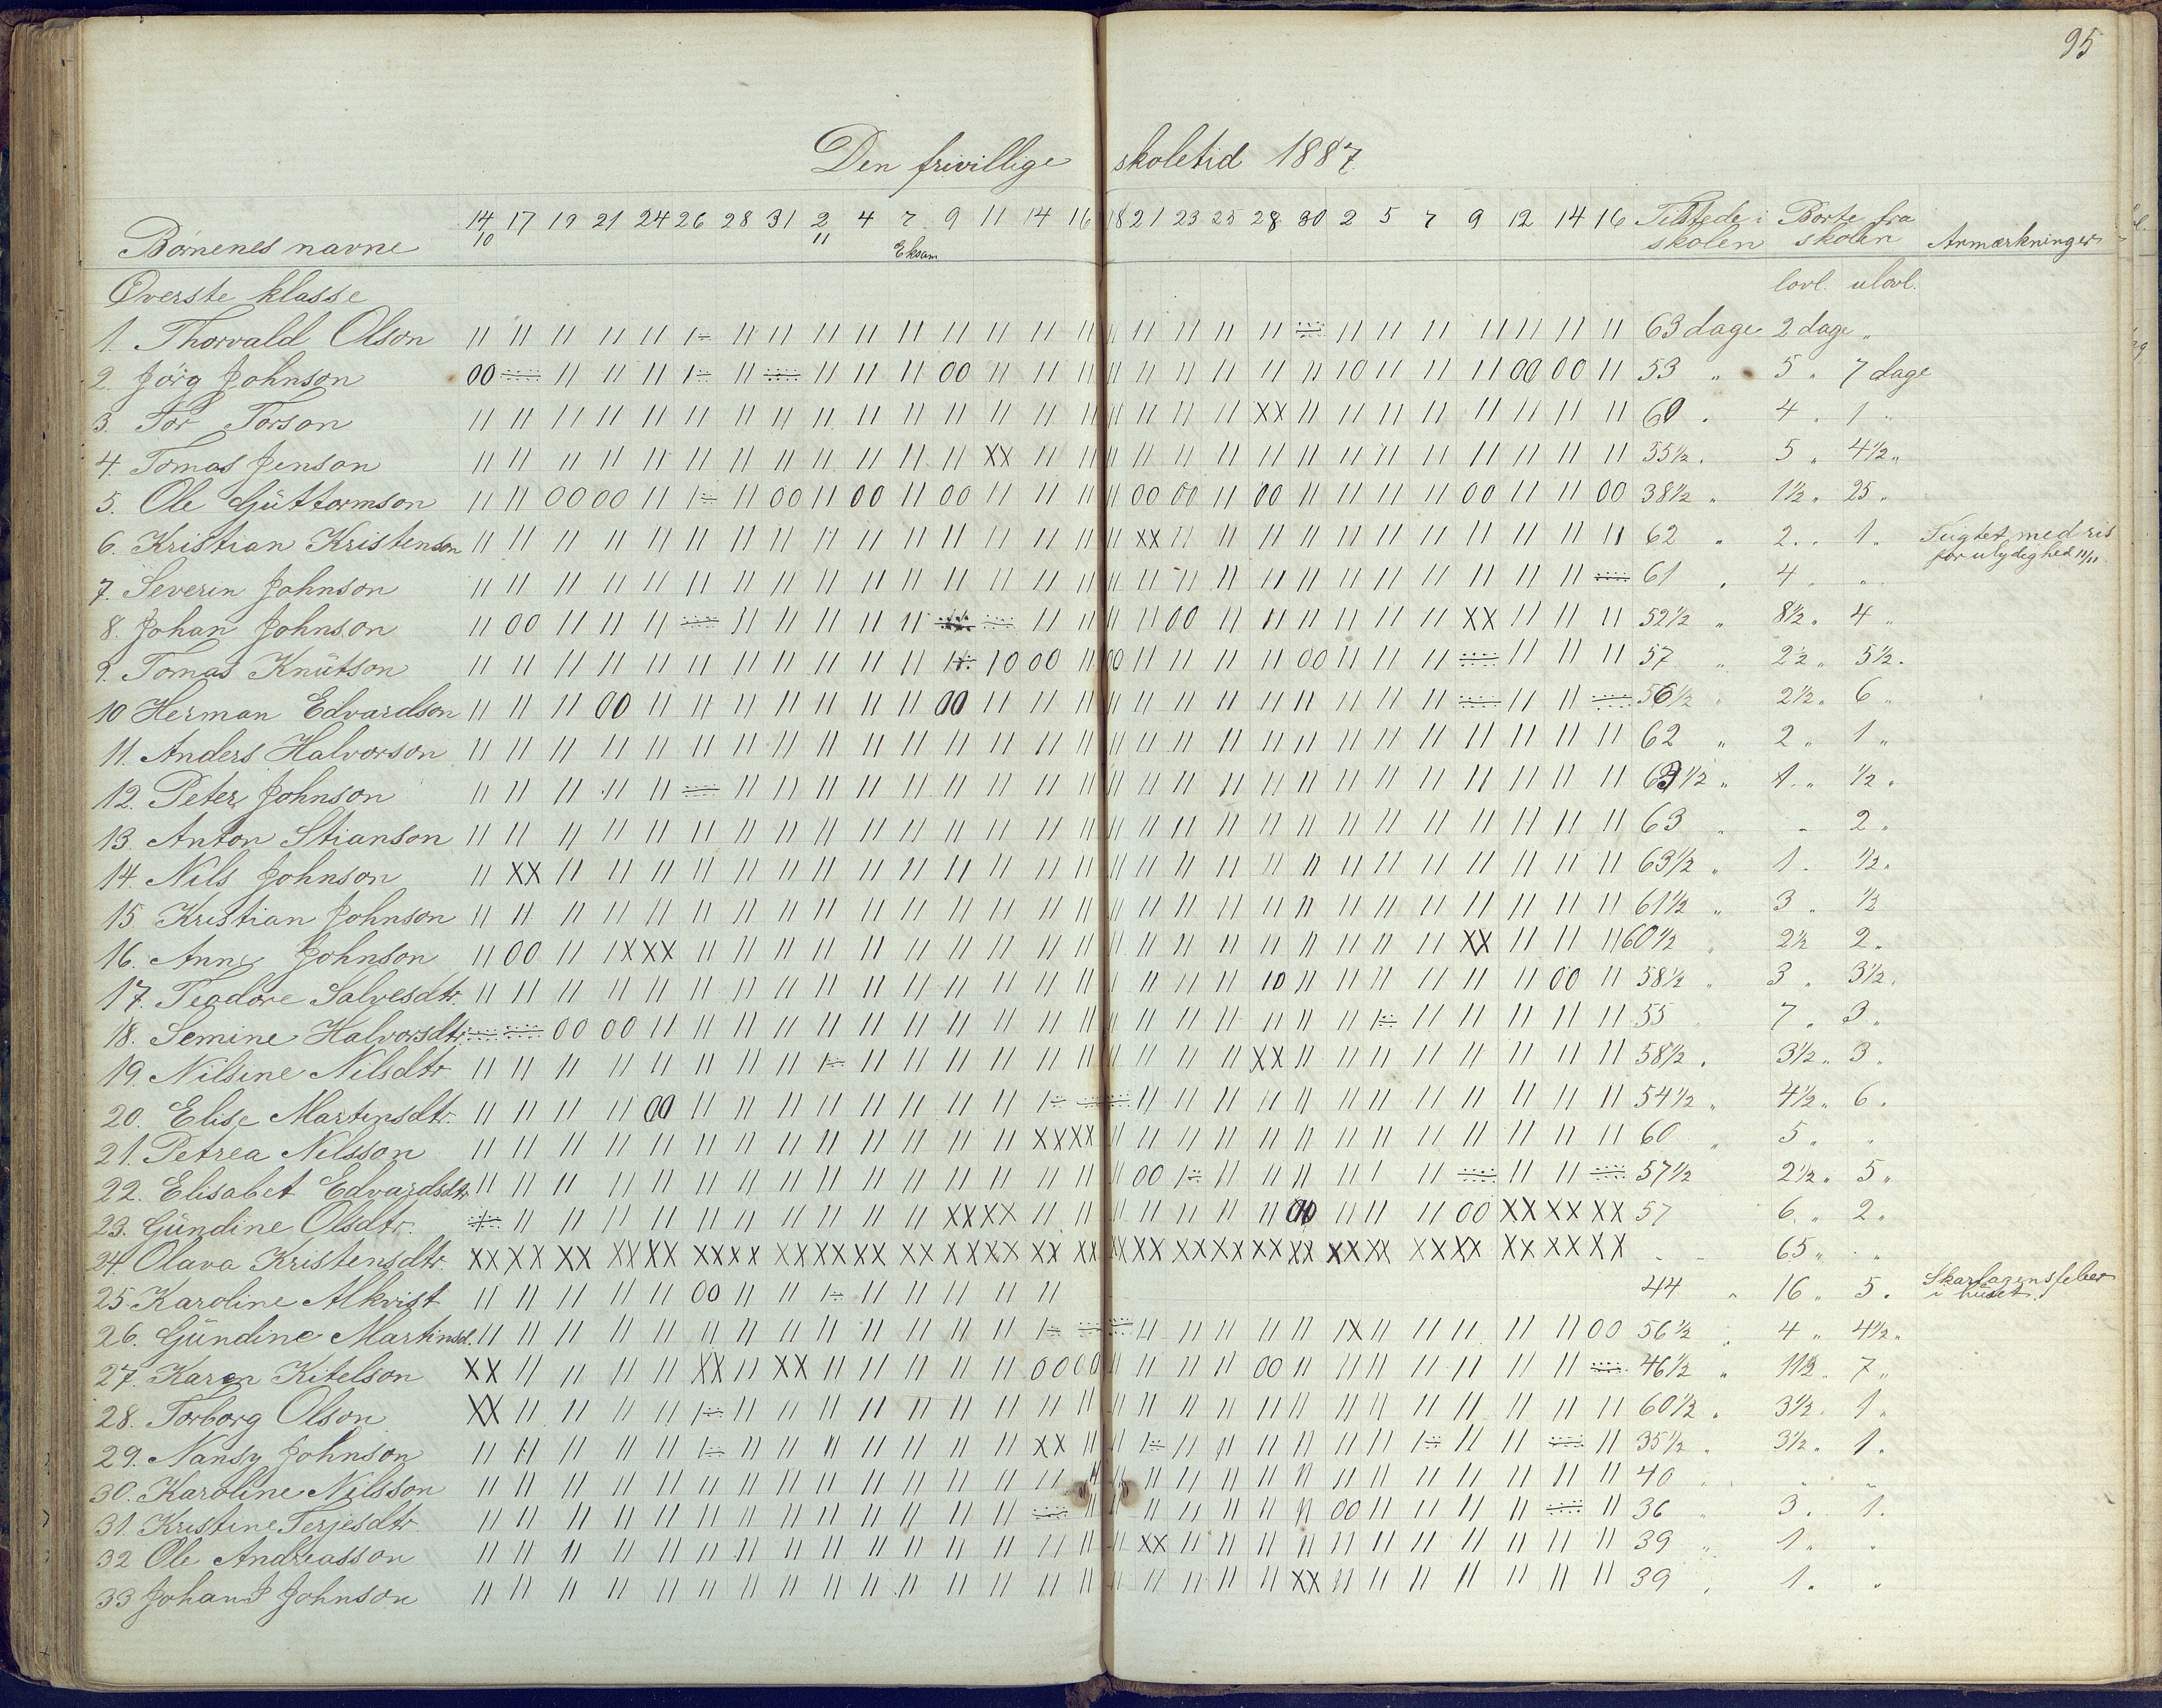 95
Den frivillige skoletid 1887.
Børnenes navne 14/10 17 19 21 24 26 28 31 2/11 4 7 9 11 14 16 18 21 23 25 28 30 2 5 7 9 12 14 16 Tilstede i skolen Borte fra skolen Anmærkninger
Eksam
Øverste klasse lovl. ulovl.
1. Thorvald Olson 63 dage 2 dage "
2. Jörg Johnson 53 " 5 " 7 dage
3. Tor Torson 60 " 4 " 1 "
4. Tomas Jenson 55½ " 5 " 4½ "
5. Ole Güttormson 38½ " 1½ " 25 "
6. Kristian Kristenson 62 " 2 " 1 " Tugtet med ris
for ulydighed 11/11.
7. Severin Johnson 61 " 4 " "
8. Johan Johnson 52½ " 8½ " 4 "
9. Tomas Knütson 57 " 2½ " 5½ "
10 Herman Edvardson 56½ " 2½ " 6 "
11. Anders Halvorson 62 " 2 " 1 "
12. Peter Johnson 63½ " 1 " ½ "
13. Anton Stianson 63 " " 2 "
14. Nils Johnson 63½ " 1 " ½ "
15. Kristian Johnson 61½ " 3 " ½
16. Anne Johnson 60½ " 2½ 2 "
17. Teodore Salvesdtr. 58½ " 3 " 3½ "
18. Semine Halvorsdtr. 55 " 7 " 3 "
19. Nilsine Nilsdtr. 58½ " 3½ " 3 "
20. Elise Martinsdtr. 54½ " 4½ " 6 "
21. Petrea Nilsson 60 " 5 " "
22. Elisabet Edvardsdtr. 57½ 2½ " 5 "
23. Gündine Olsdtr. 57 6 " 2 "
24. Olava Kristensdtr. - - 65 " "
25. Karoline Alkvist 44 " 16 " 5 " Skarlagensfeber
i huset.
26. Gündine Martinsd. 56½ " 4 " 4½ "
27. Karen Kitelson 46½ " 11½ " 7 "
28. Torborg Olson 60½ " 3½ " 1 "
29. Nansy Johnson 35½ " 3½ " 1 "
30. Karoline Nilsson 40 " - -
31. Kristine Terjesdtr. 36 " 3 " 1 "
32 Ole Andreasson 39 " 1 " "
33 Johan J Johnson 39 " 1 " "